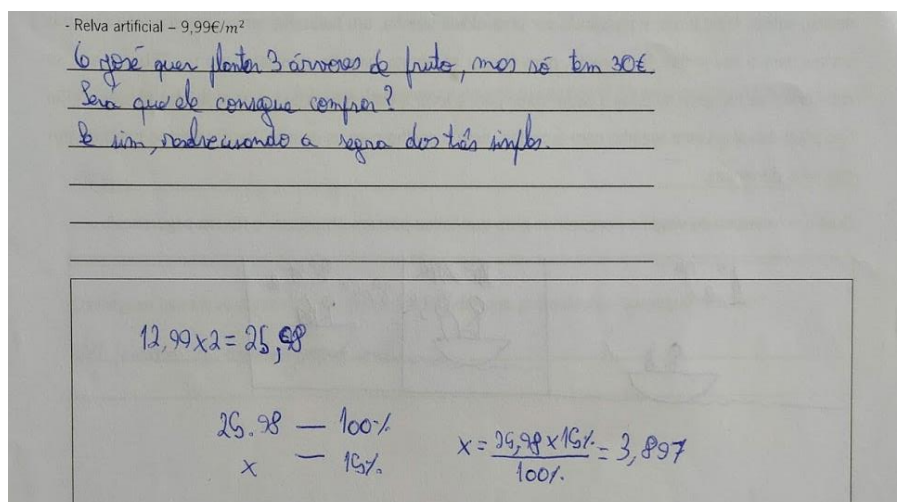 - Relva artificial – 9,99€/m²
O José quer plantar 3 árvores de fruto, mas só tem 30€.
Será que ele consegue comprar?
Se sim, a regra dos três simples.
12,99x2=25,98
25.98 — 100%
x — 15%
x = 25,98 x 15% / 100% = 3,897